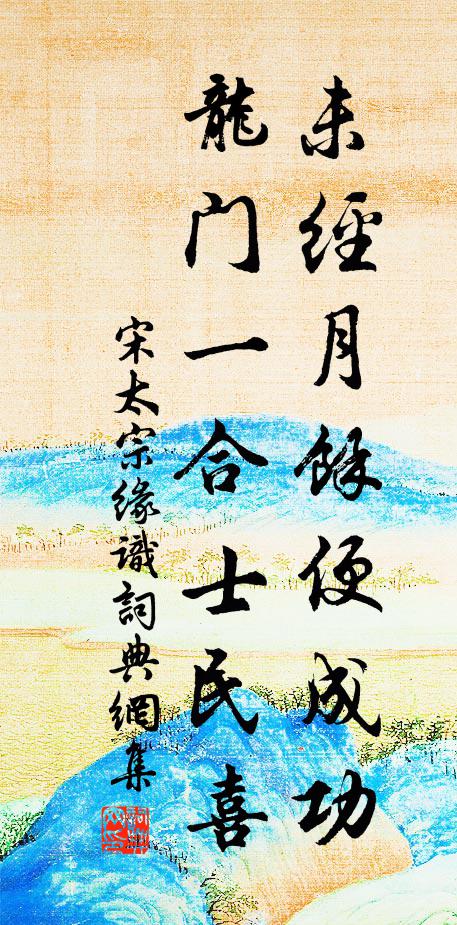 未經月餘便成功
龍门一合士民喜
宋太宗緣識詞典網集